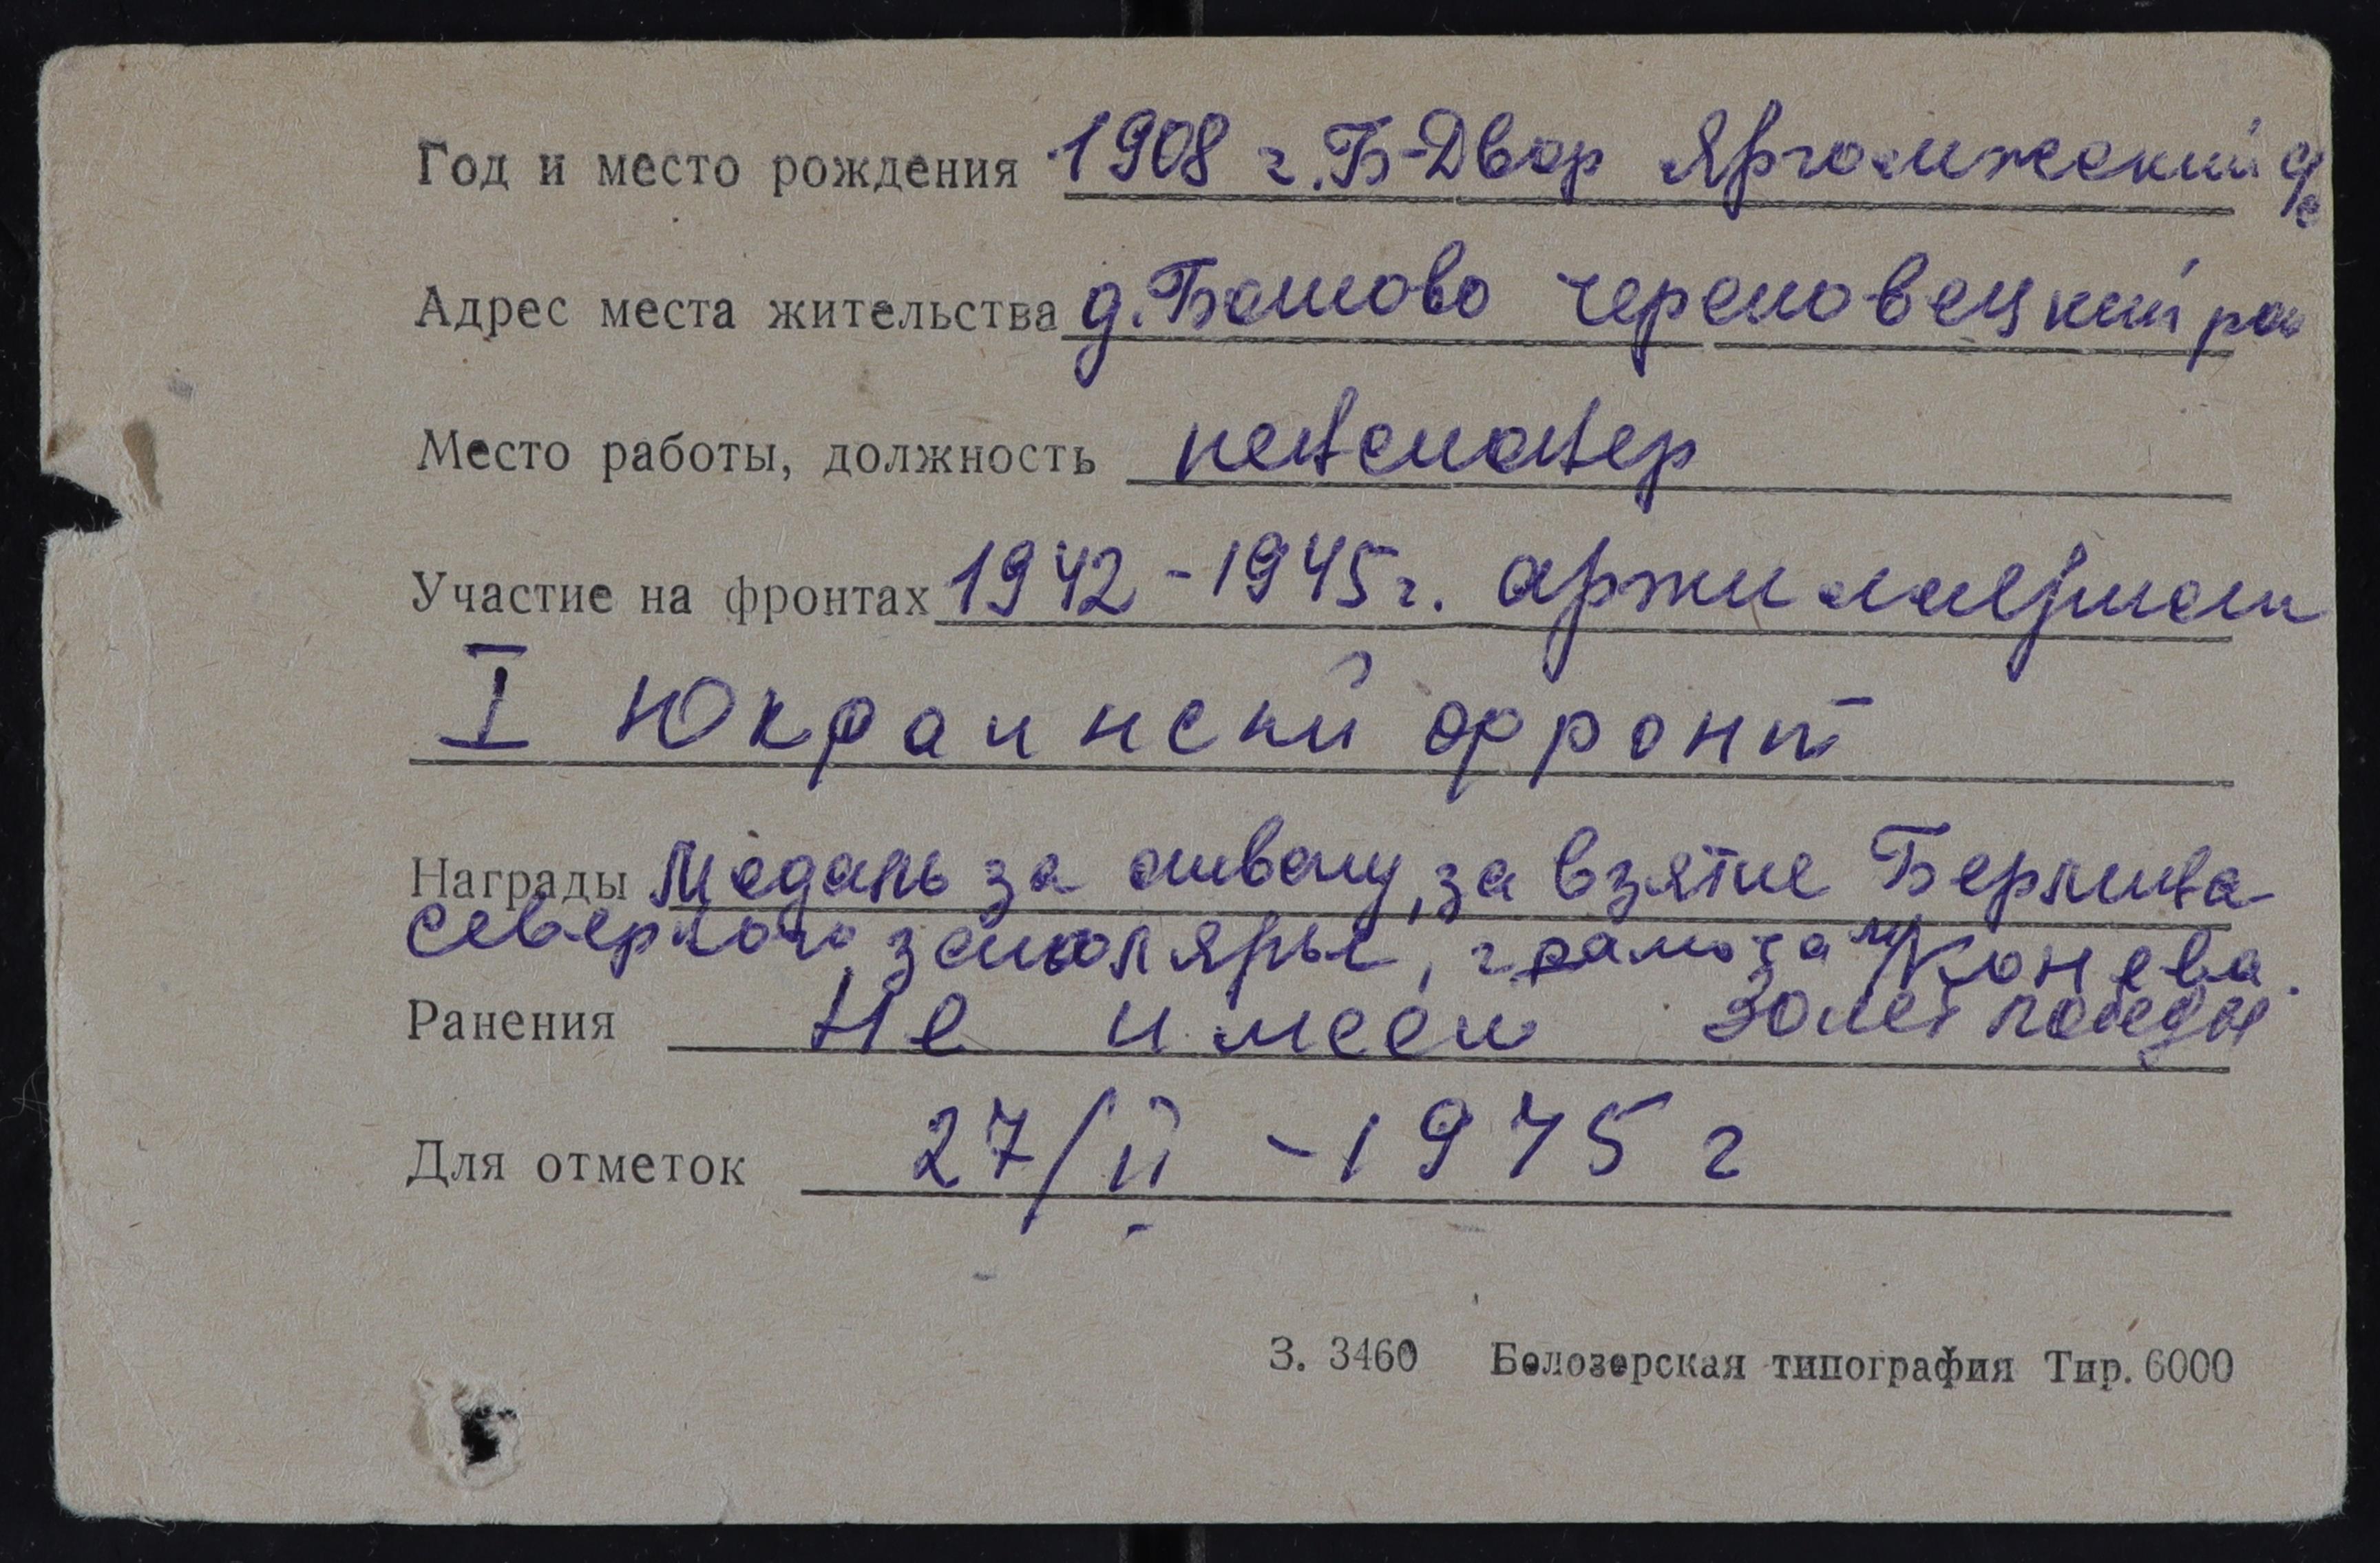 Год и место рождения 1908 г. Б-Двор Яргомжский с/с
Адрес места жительства д. Ботово череповецкий рай
Место работы, должность пенсионер
Участие на фронтах 1942-1945 г.
I Юкраински фронт
Награды Медаль за отвагу, за взятие Берлина
северного заполярье, грамота Конева.
Ранения Не имеет 30 лет победы
Для отметок 27/II - 1975 г
З. 3460 Белозерская типография Тир. 6000